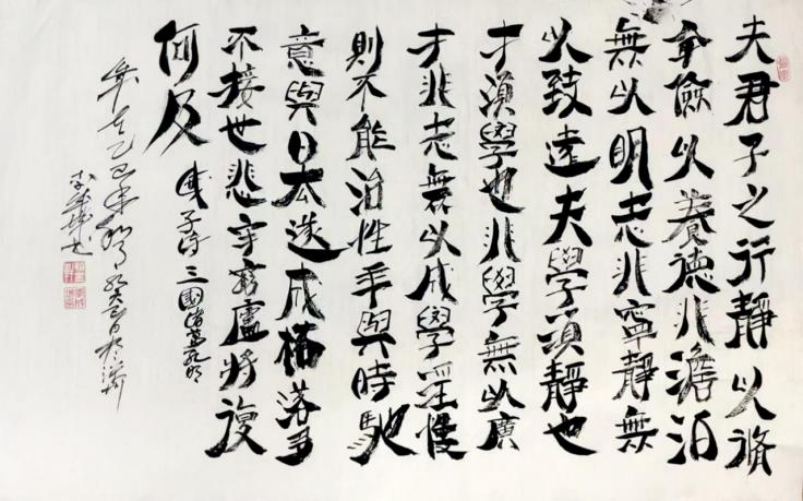 夫君子之行靜以脩
身儉以養德非澹泊
無以明志非寧靜無
以致遠夫學須靜也
才須學也非學無以廣
才非志無以成學淫慢
則不能治性年與時馳
意與日去遂成枯落多
不接世悲守窮廬將復
何及
戒子詩 三國諸葛孔明
歲在乙巳年